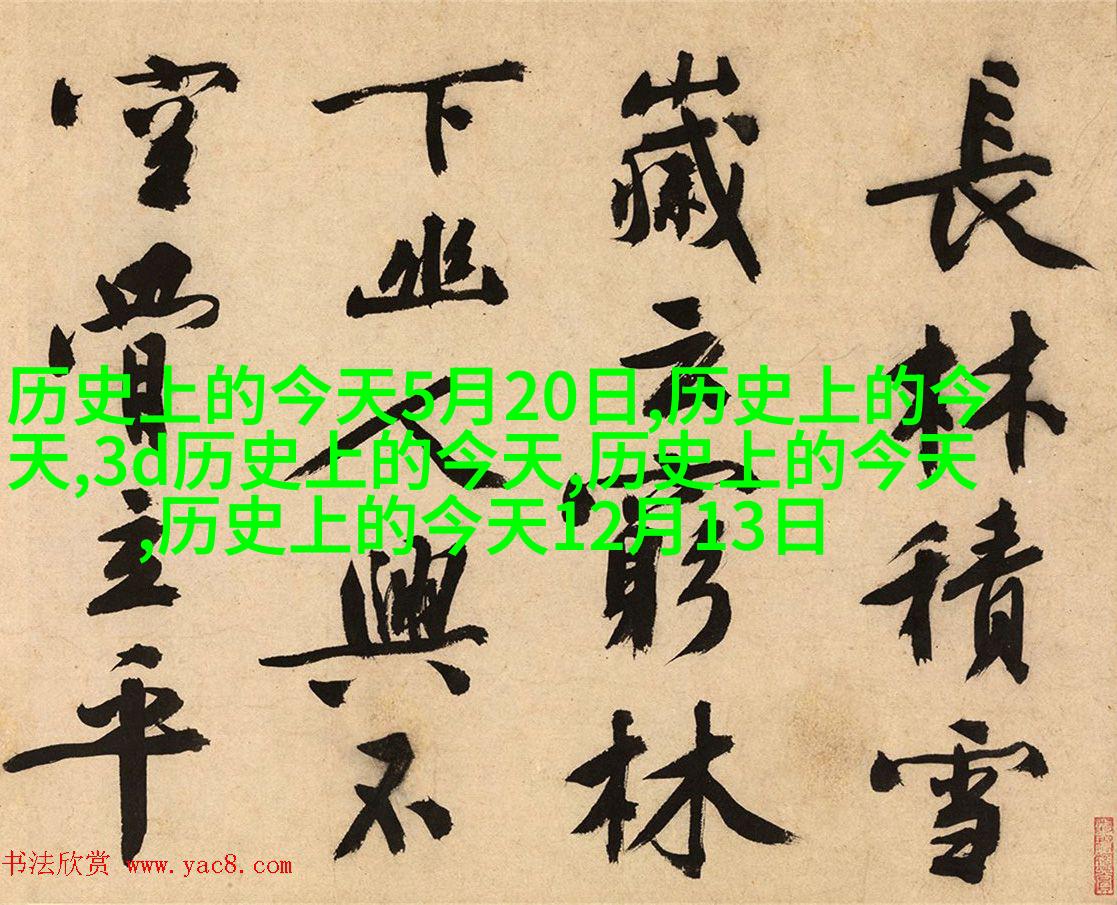 長林積雪
歲云窮林
下幽人興不
空賓主平
历史上的今天5月20日,历史上的今
天,3d历史上的今天,历史上的今天
,历史上的今天12月13日
书法欣赏 www.yac8.com